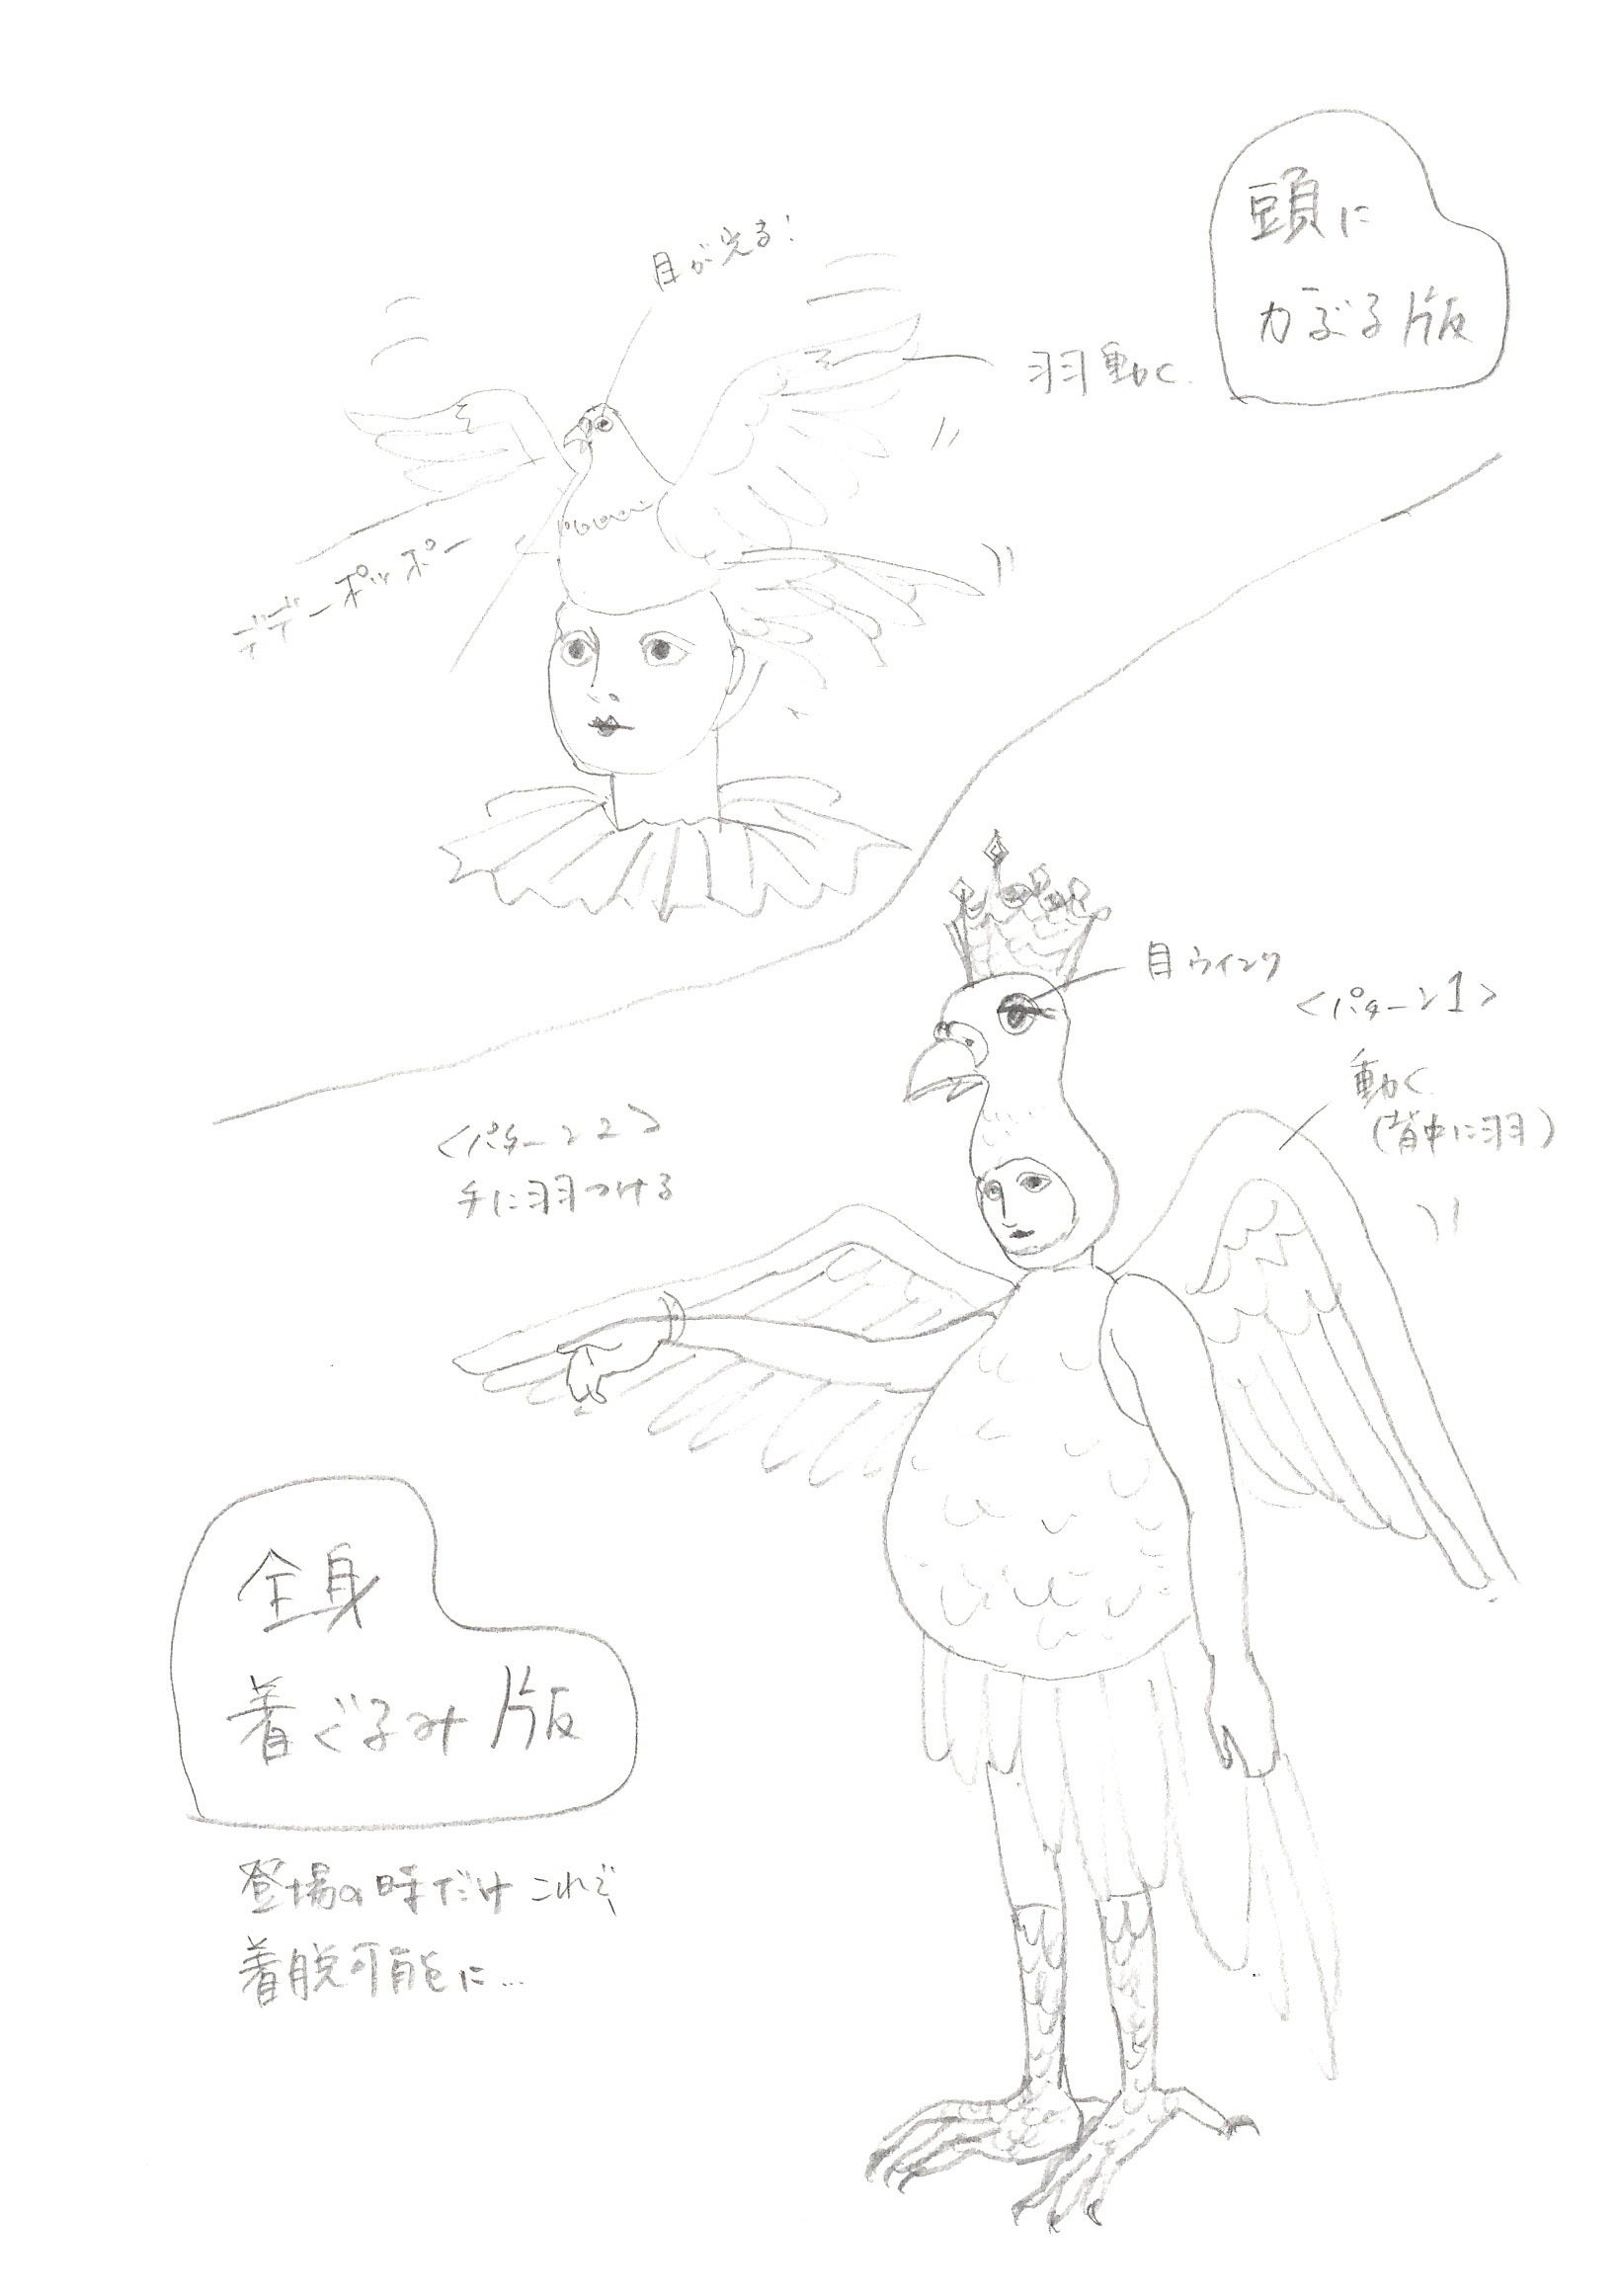 頭に
かぶる版
目が光る!
羽動く
デデーポッポー
目ウインク
<パターン1>
動く
(背中に羽)
<パターン2>
手に羽つける
全身
着ぐるみ版
登場の時だけこれで
着脱可能に…